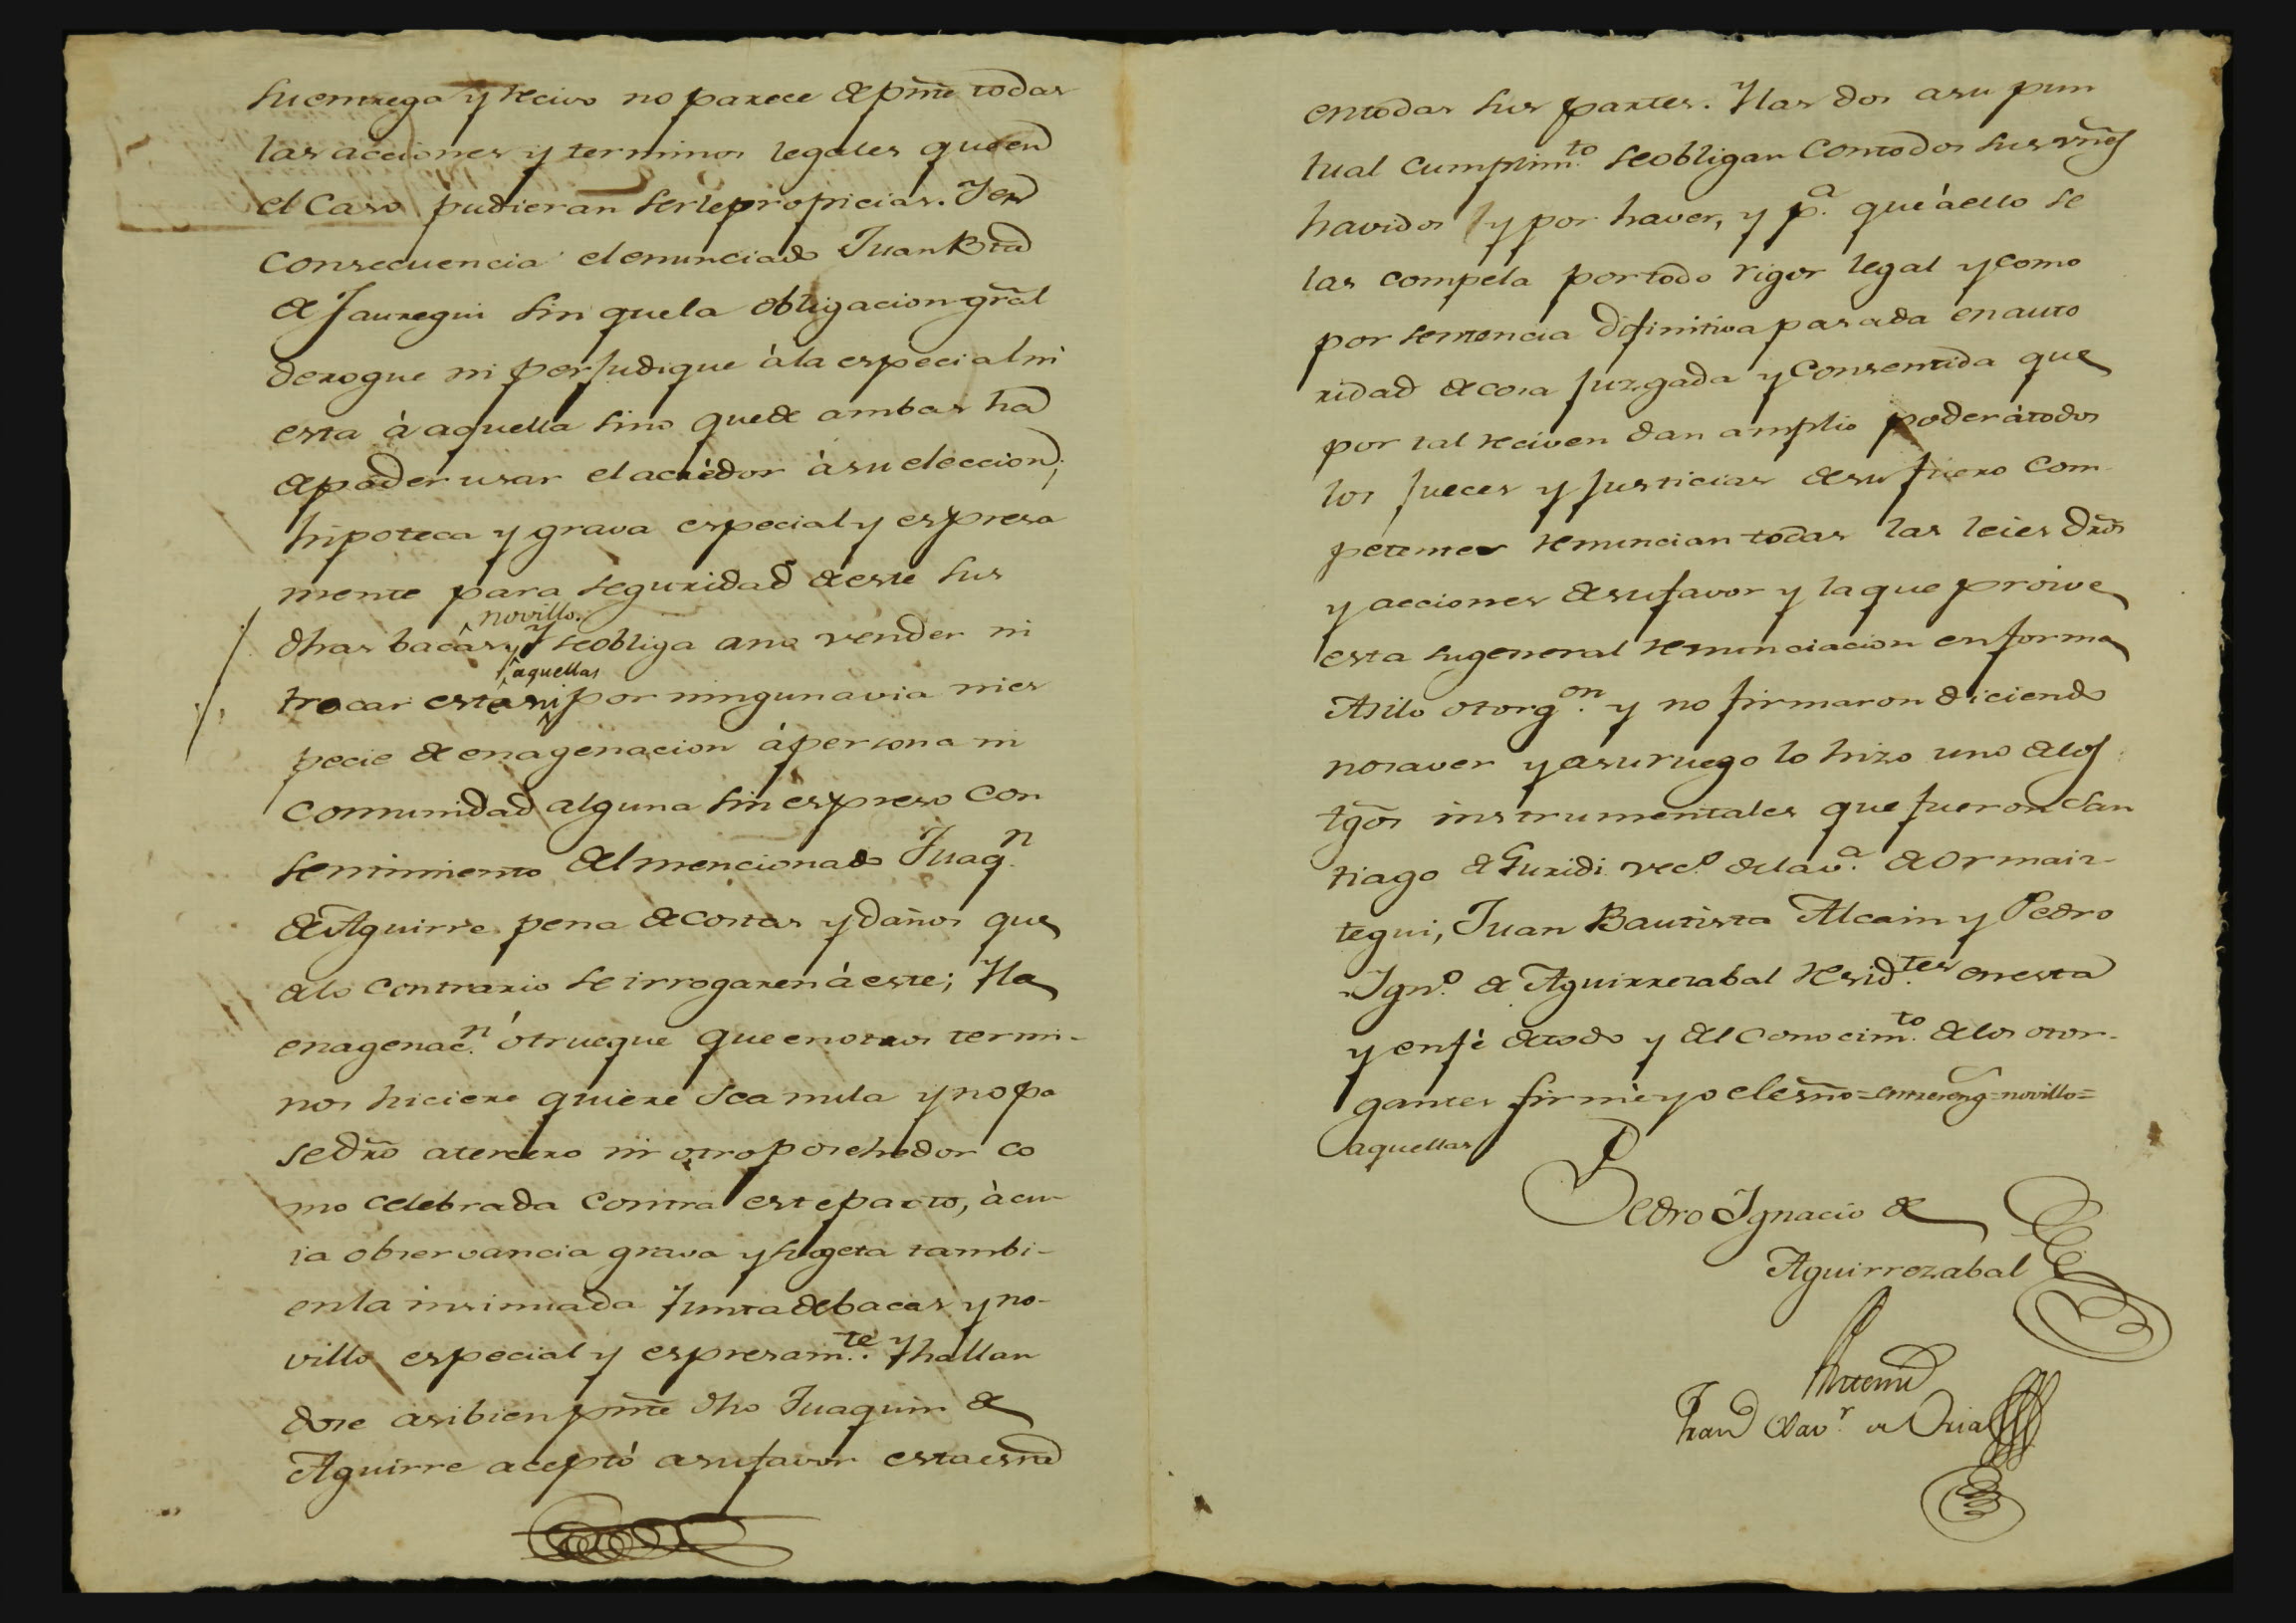 su entrega y recivo no parece de pnte todas
las acciones y terminos legales que en
el caso pudieran serle propicias. Y en
consecuencia el enunciado Juan Bta
de Jauregui sin que la obligacion gral
derogue ni perjudique à la especial ni
esta à aquella sino que de ambas ha
de poder usar el acrèdor à su eleccion;
hipoteca y grava especial y espresa
mente para seguridad de este sus
novillo
dhas bacas y se obliga ano vender ni
aquellas
trocar estas ni por ninguna via ni es
pecie de enagenacion à persona ni
comunidad alguna sin espreso con
sentimiento del mencionado Juaqn.
de Aguirre pena de costas y daños que
de lo contrario se irrogaren à este; Y la
enagenacn. ò trueque que en otros termi-
nos hiciere quiere sea nula y no pa
se dro a tercero ni otro posehedor co
mo celebrada contra este pacto, à cu-
ia observancia grava y sugeta tambi-
en la insinuada Junta de bacas y no-
villo especial y espresamte. Y hallan
dose asi bien pnte dho Juaquin de
Aguirre aceptò a su favor esta esra
en todas sus partes. Y las dos a su pun
tual cumplimto. se obligan con todos sus vnes
havidos y por haver, y pa. que à ello se
las compela por todo rigor legal y como
por sentencia difinitiva pasada en auto
ridad de cosa juzgada y consentida que
por tal reciven dan amplio poder à todos
los jueces y justicias de su fuero com-
petentes renuncian todas las leies dros
y acciones de su favor y la que proive
esta su general renunciacion en forma
Asi lo otorgon. y no firmaron diciendo
no saver y a su ruego lo hizo uno de los
tgos instrumentales que fueron San
tiago de Guridi veco. de la va. de Ormaiz-
tegui, Juan Bautista Alcain y Pedro
Igno. de Aguirrezabal residtes. en esta
y en fè de todo y del conocimto. de los otor-
gantes firmè yo el esno = entrereng = novillo =
aquellas
Pedro Ignacio de
Aguirrezabal
Antemi
Fran Xavr. de Oria